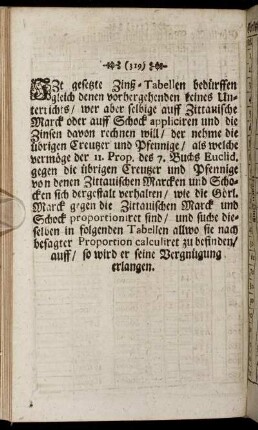 (319)
JZt gesetzte Zinß-Tabellen bedürffen
gleich denen vorhergehenden keines Un-
terrichts/ wer aber selbige auff Zittauische
Marck oder auff Schock appliciren und die
Zinsen davon rechnen will/ der nehme die
übrigen Creutzer und Pfennige/ als welche
vermöge der 11. Prop. des 7. Buchs Euclid.
gegen die übrigen Creutzer und Pfennige
von denen Zittauischen Marcken und Scho-
cken sich dergestalt verhalten/ wie die Görl.
Marck gegen die Zittauischen Marck und
Schock proportioniret sind/ und suche die-
selben in folgenden Tabellen allwo sie nach
besagter Proportion calculiret zu befinden/
auff/ so wird er seine Vergnügung
erlangen.